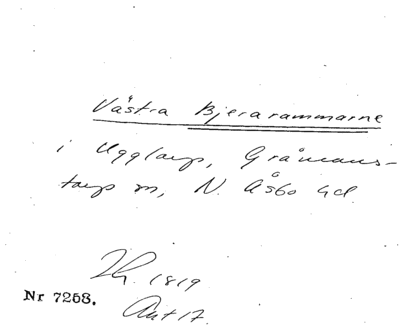 Västra Bjerarammarne
i Ugglarp, Gråmans-
tarp sn, N. Åsbo hd
Lh. 1819
Nr 7268.
Akt 17.